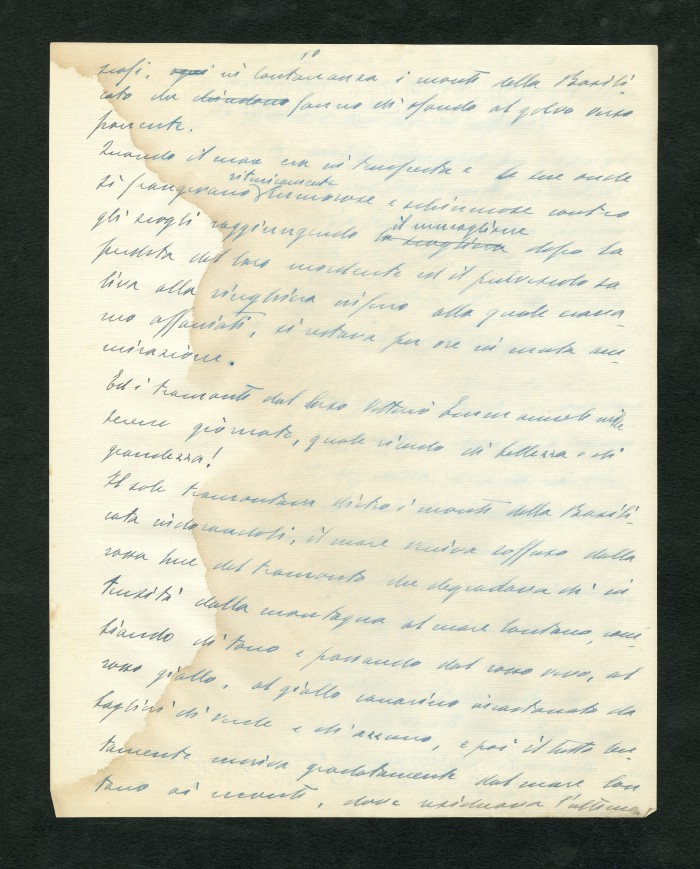 10
scosi. qui in lontananza i monti della Basili
cata che chiudono fanno di sfondo al golfo verso
ponente.
Quando il mare era in tempesta e le sue onde
si frangevano ritmicamente rumorose e schiumose contro
gli scogli raggiungendo la scogliera il muraglione dopo la
perdita del loro mordente ed il pulviscolo sa
liva alla ringhiera infino alla quale erava-
mo affacciati, si restava per ore in muta am-
mirazione.
Ed i tramonti dal Corso Vittorio Emmanuele nelle
serene giornate, quale ricordo di bellezza e di
grandezza!
Il sole tramontava dietro i monti della Basili-
cata indorandoli, il mare veniva soffuso dalla
rossa luce del tramonto che degradava di in
tensità dalla montagna al mare lontano, cam-
biando di tono e passando dal rosso vivo, al
rosso giallo, al giallo canarino incastonato da
bagliori di verde e di azzurro, e poi il tutto len-
tamente moriva gradatamente dal mare lon
tano ai monti, dove residuava l'ultima